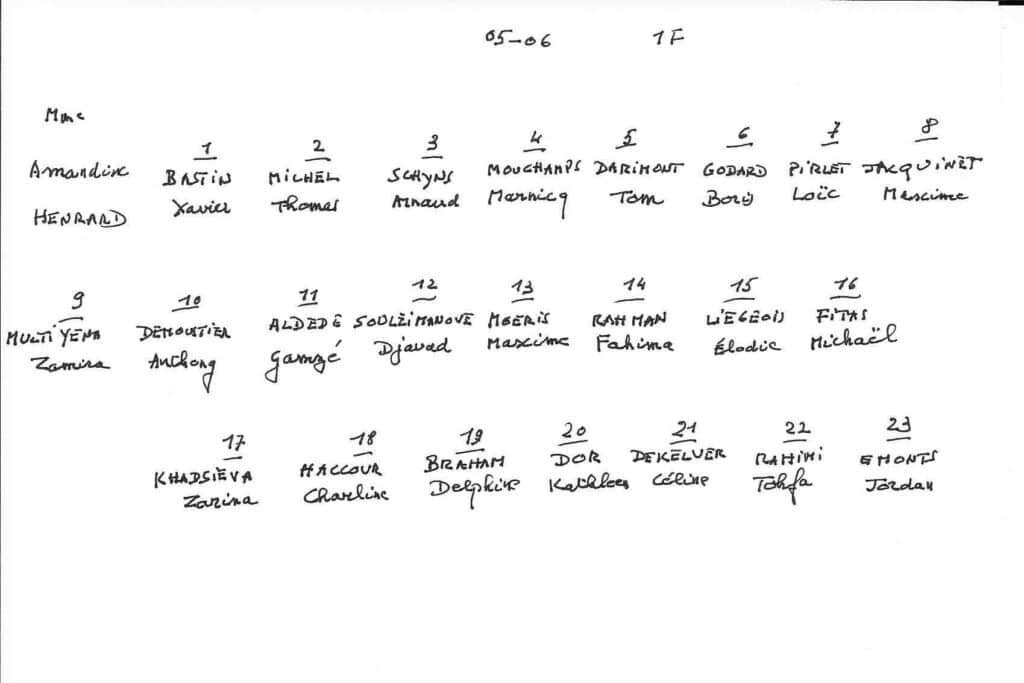 05-06 1F
Mme
1 2 3 4 5 6 7 8
Amandine BASTIN MICHEL SCHYNS MOUCHAMPS DARIMONT GODARD PIRLET JACQUINET
HENRARD Xavier Thomas Arnaud Marnicq Tom Boris Loïc Maxime
9 10 11 12 13 14 15 16
MULTIYENA DEMOUSTIER ALDEDE SOULEÏMANOVE MOERIS RAHMAN LIÉGEOIS FITAS
Zamira Anthony Gamzé Djavad Maxime Fahima Élodie Michaël
17 18 19 20 21 22 23
KHADSIEVA HACCOUR BRAHAM DOR DEKELVER RAHIMI EMONTS
Zarina Charline Delphine Kathleen Céline Tohfa Jordan